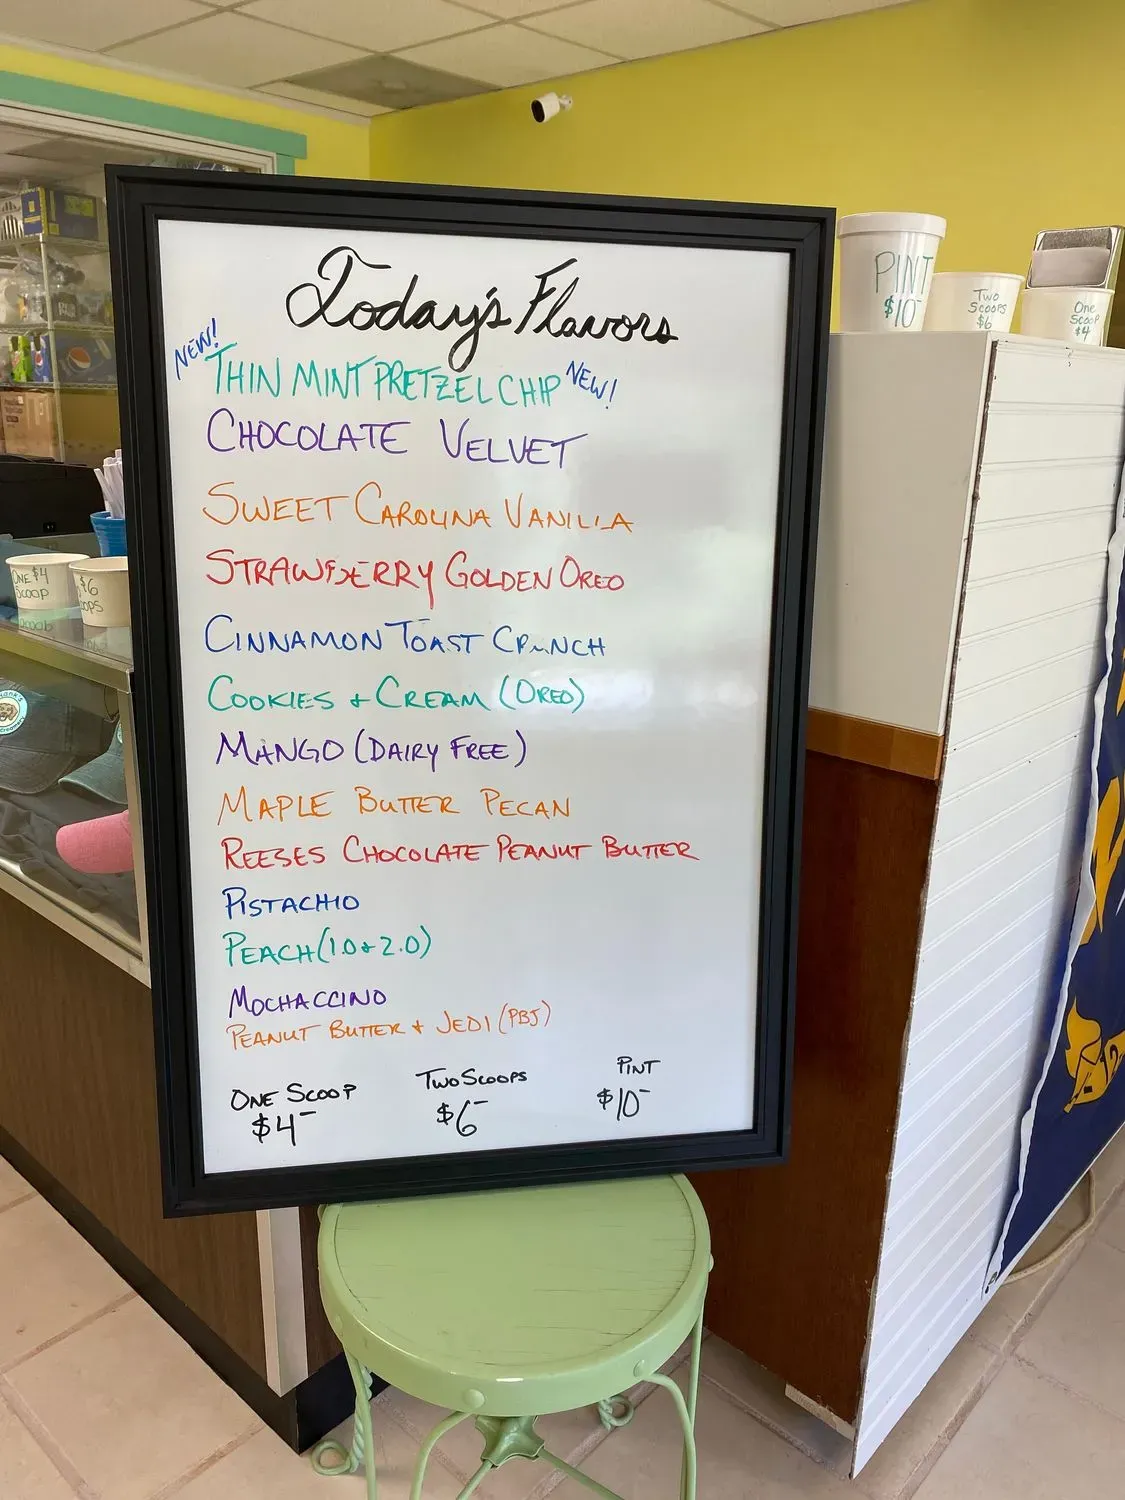 Today's Flavors
NEW! THIN MINT PRETZEL CHIP NEW!
CHOCOLATE VELVET
SWEET CAROLINA VANILLA
STRAWBERRY GOLDEN OREO
CINNAMON TOAST CRUNCH
COOKIES + CREAM (OREO)
MANGO (DAIRY FREE)
MAPLE BUTTER PECAN
REESES CHOCOLATE PEANUT BUTTER
PISTACHIO
PEACH (1.0 + 2.0)
MOCHACCINO
PEANUT BUTTER + JEDI (PBJ)
ONE SCOOP TWO SCOOPS PINT
$4- $6- $10-
PINT
$10-
TWO
SCOOPS
$6
ONE
SCOOP
$4
ONE $4
SCOOP
$6
OPS